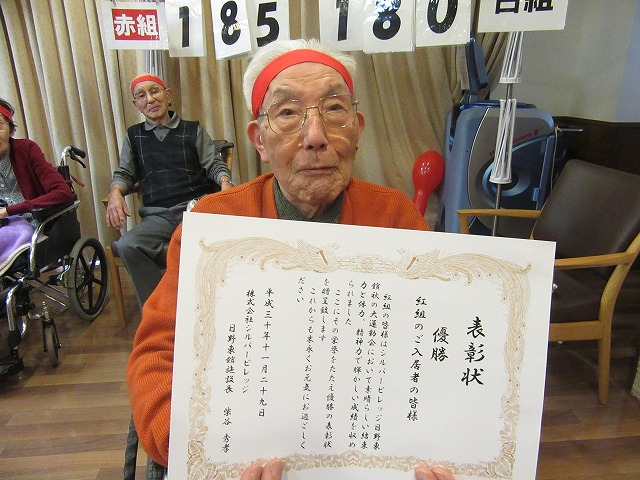 赤組
185
180
白組
表彰状
優勝
紅組のご入居者の皆様
紅組の皆様はシルバービレッジ日野東
館秋の大運動会において素晴らしい結束
力と体力、精神力で輝かしい成績を収め
られました
ここにその栄誉をたたえ優勝の表彰状
を贈呈致します
これからも末永くお元気にお過ごしく
ださい
平成三十年十一月二十九日
株式会社シルバービレッジ
日野東館施設長 柴谷 秀孝